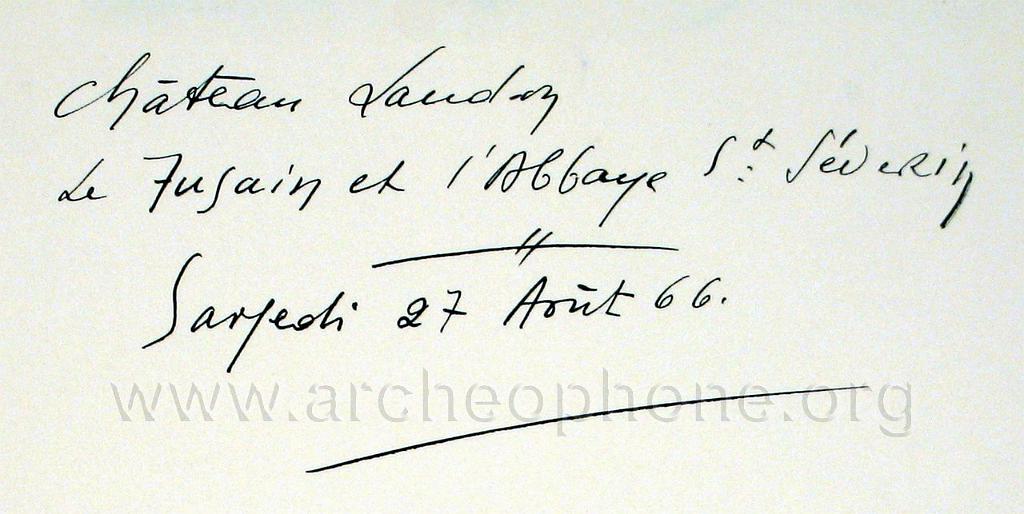 Château Landon
Le Fusain et l'Abbaye St. Séverin
Samedi 27 Août 66.
www.archeophone.org